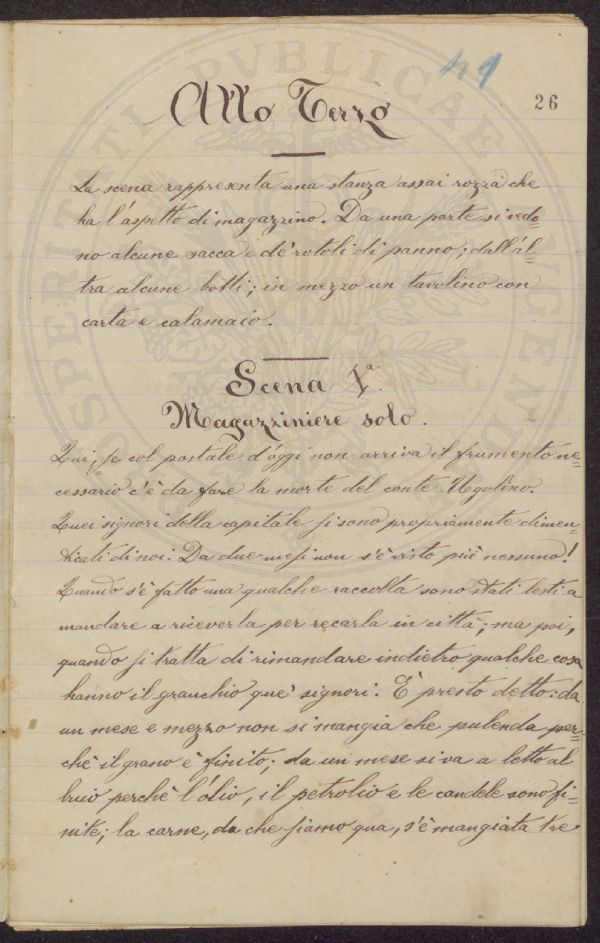 41
26
Atto Terzo
La scena rappresenta una stanza assai rozza che
ha l'aspetto di magazzino. Da una parte si vedo=
no alcune sacca e de' rotoli di panno; dall'al=
tra alcune botti; in mezzo un tavolino con
carta e calamaio.
Scena 1ª.
Magazziniere solo.
Qui, se col postale d'oggi non arriva il frumento ne=
cessario c'è da fare la morte del conte Ugolino.
Quei signori della capitale si sono propriamente dimen=
ticati di noi. Da due mesi non s'è visto più nessuno!
Quando s'è fatto una qualche raccolta sono stati lesti a
mandare a riceverla per recarla in città; ma poi,
quando si tratta di rimandare indietro qualche cosa
hanno il granchio que' signori. È presto detto: da
un mese e mezzo non si mangia che pulenda per=
chè il grano è finito; da un mese si va a letto al
buio perchè l'olio, il petrolio e le candele sono fi=
nite; la carne, da che siamo qua, s'è mangiata tre